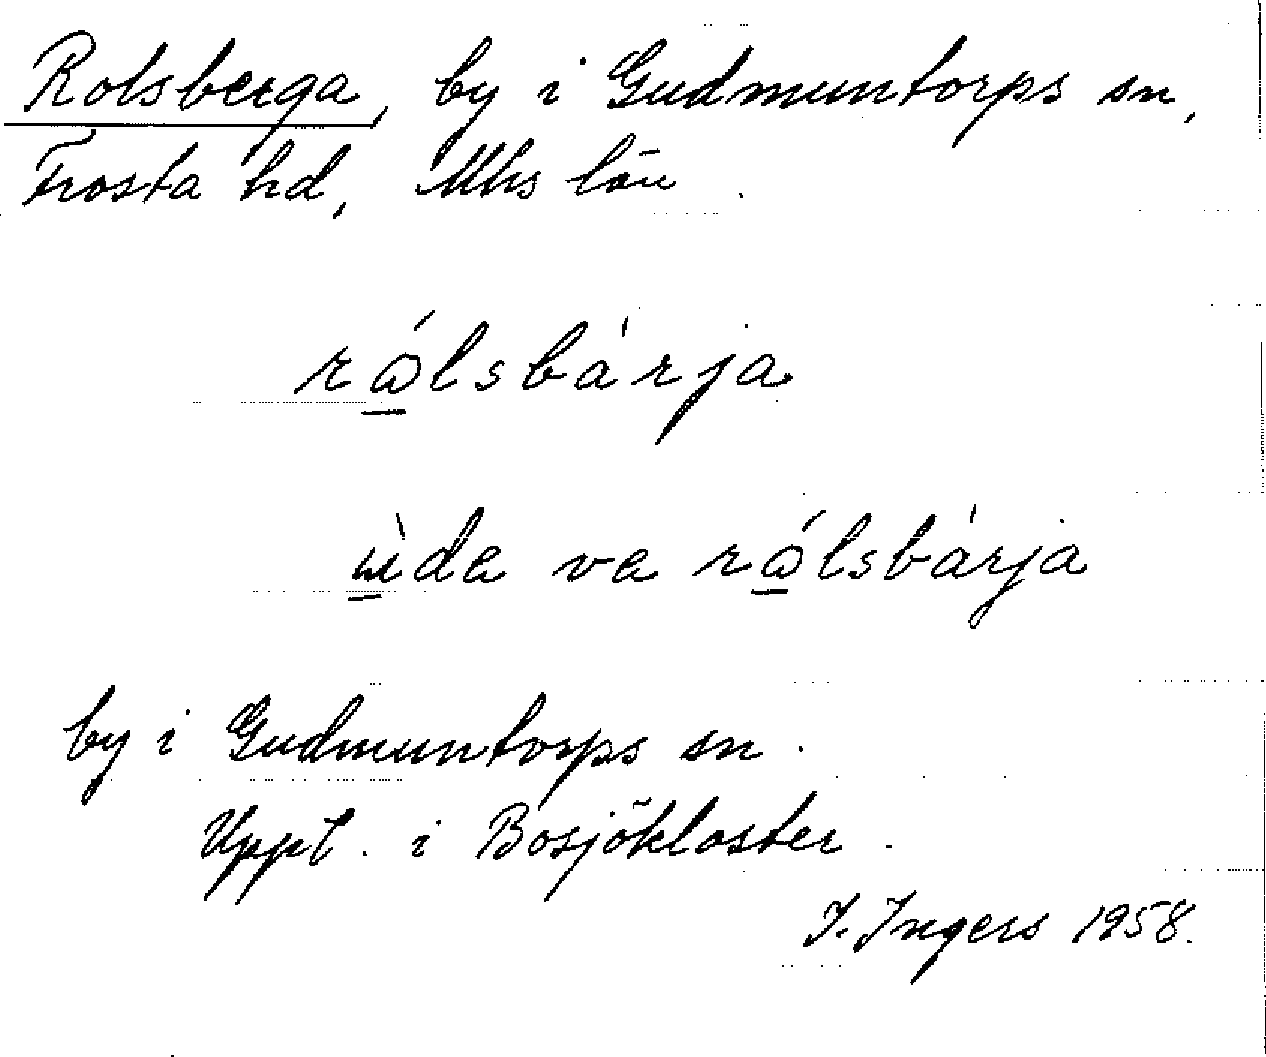 Rolsberga, by i Gudmuntorps sn,
Frosta hd, Mhs län.
rålsbàrja
ùda va rålsbàrja
by i Gudmuntorps sn.
Uppt. i Bosjökloster.
I. Ingers 1958.